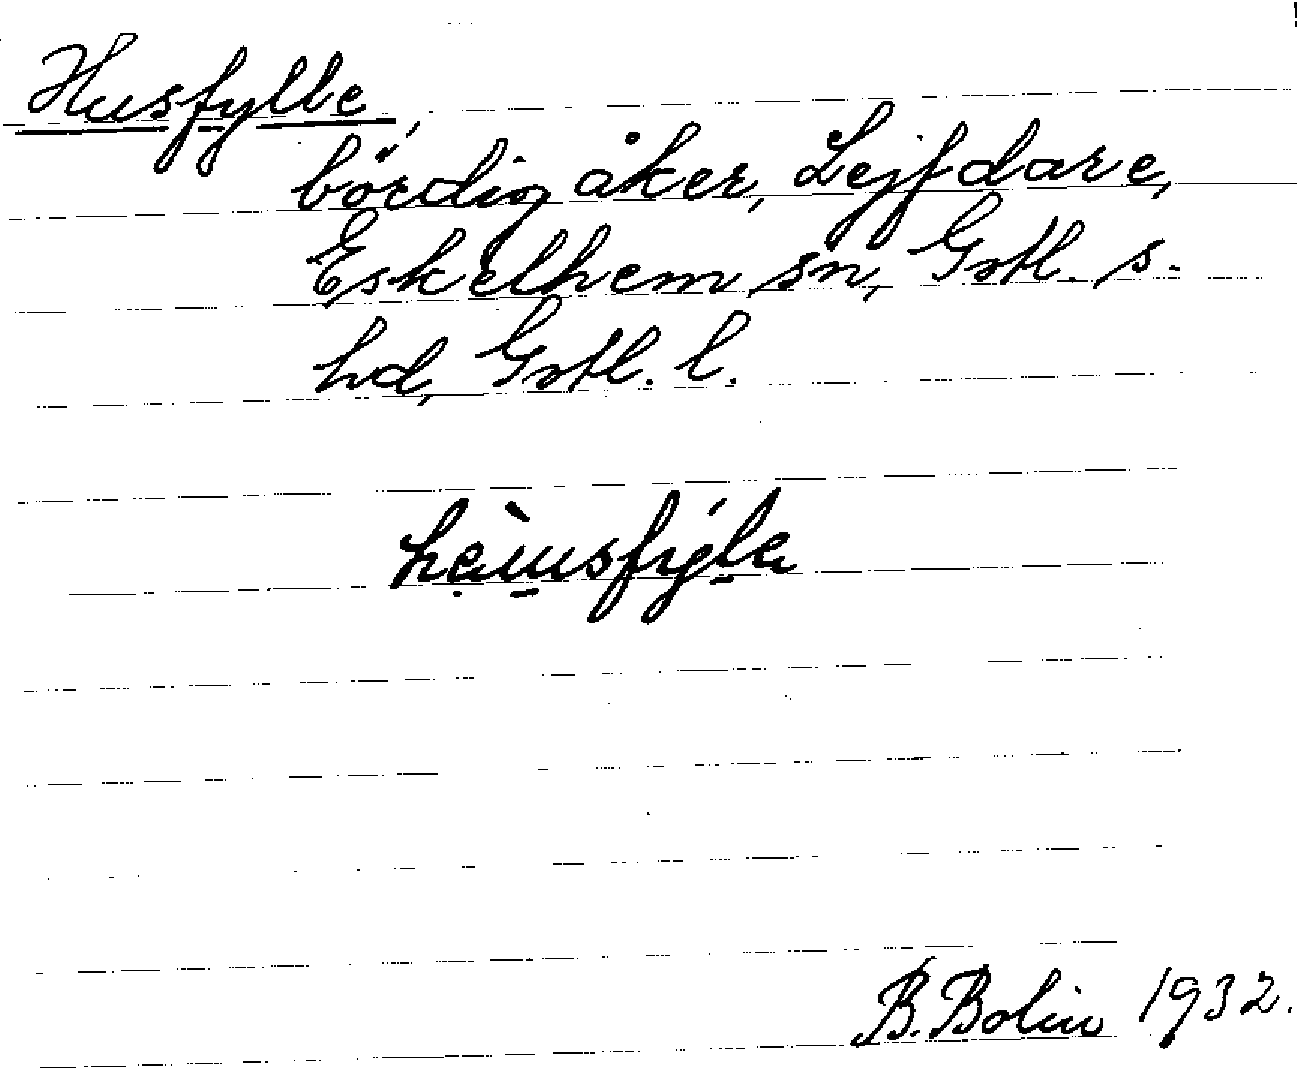 Husfylle,
bördig åker, Lejfdare,
Eskelhem sn, Gotl. s.
hd, Gotl. l.
hæ̀usfýla
B. Bolin 1932.